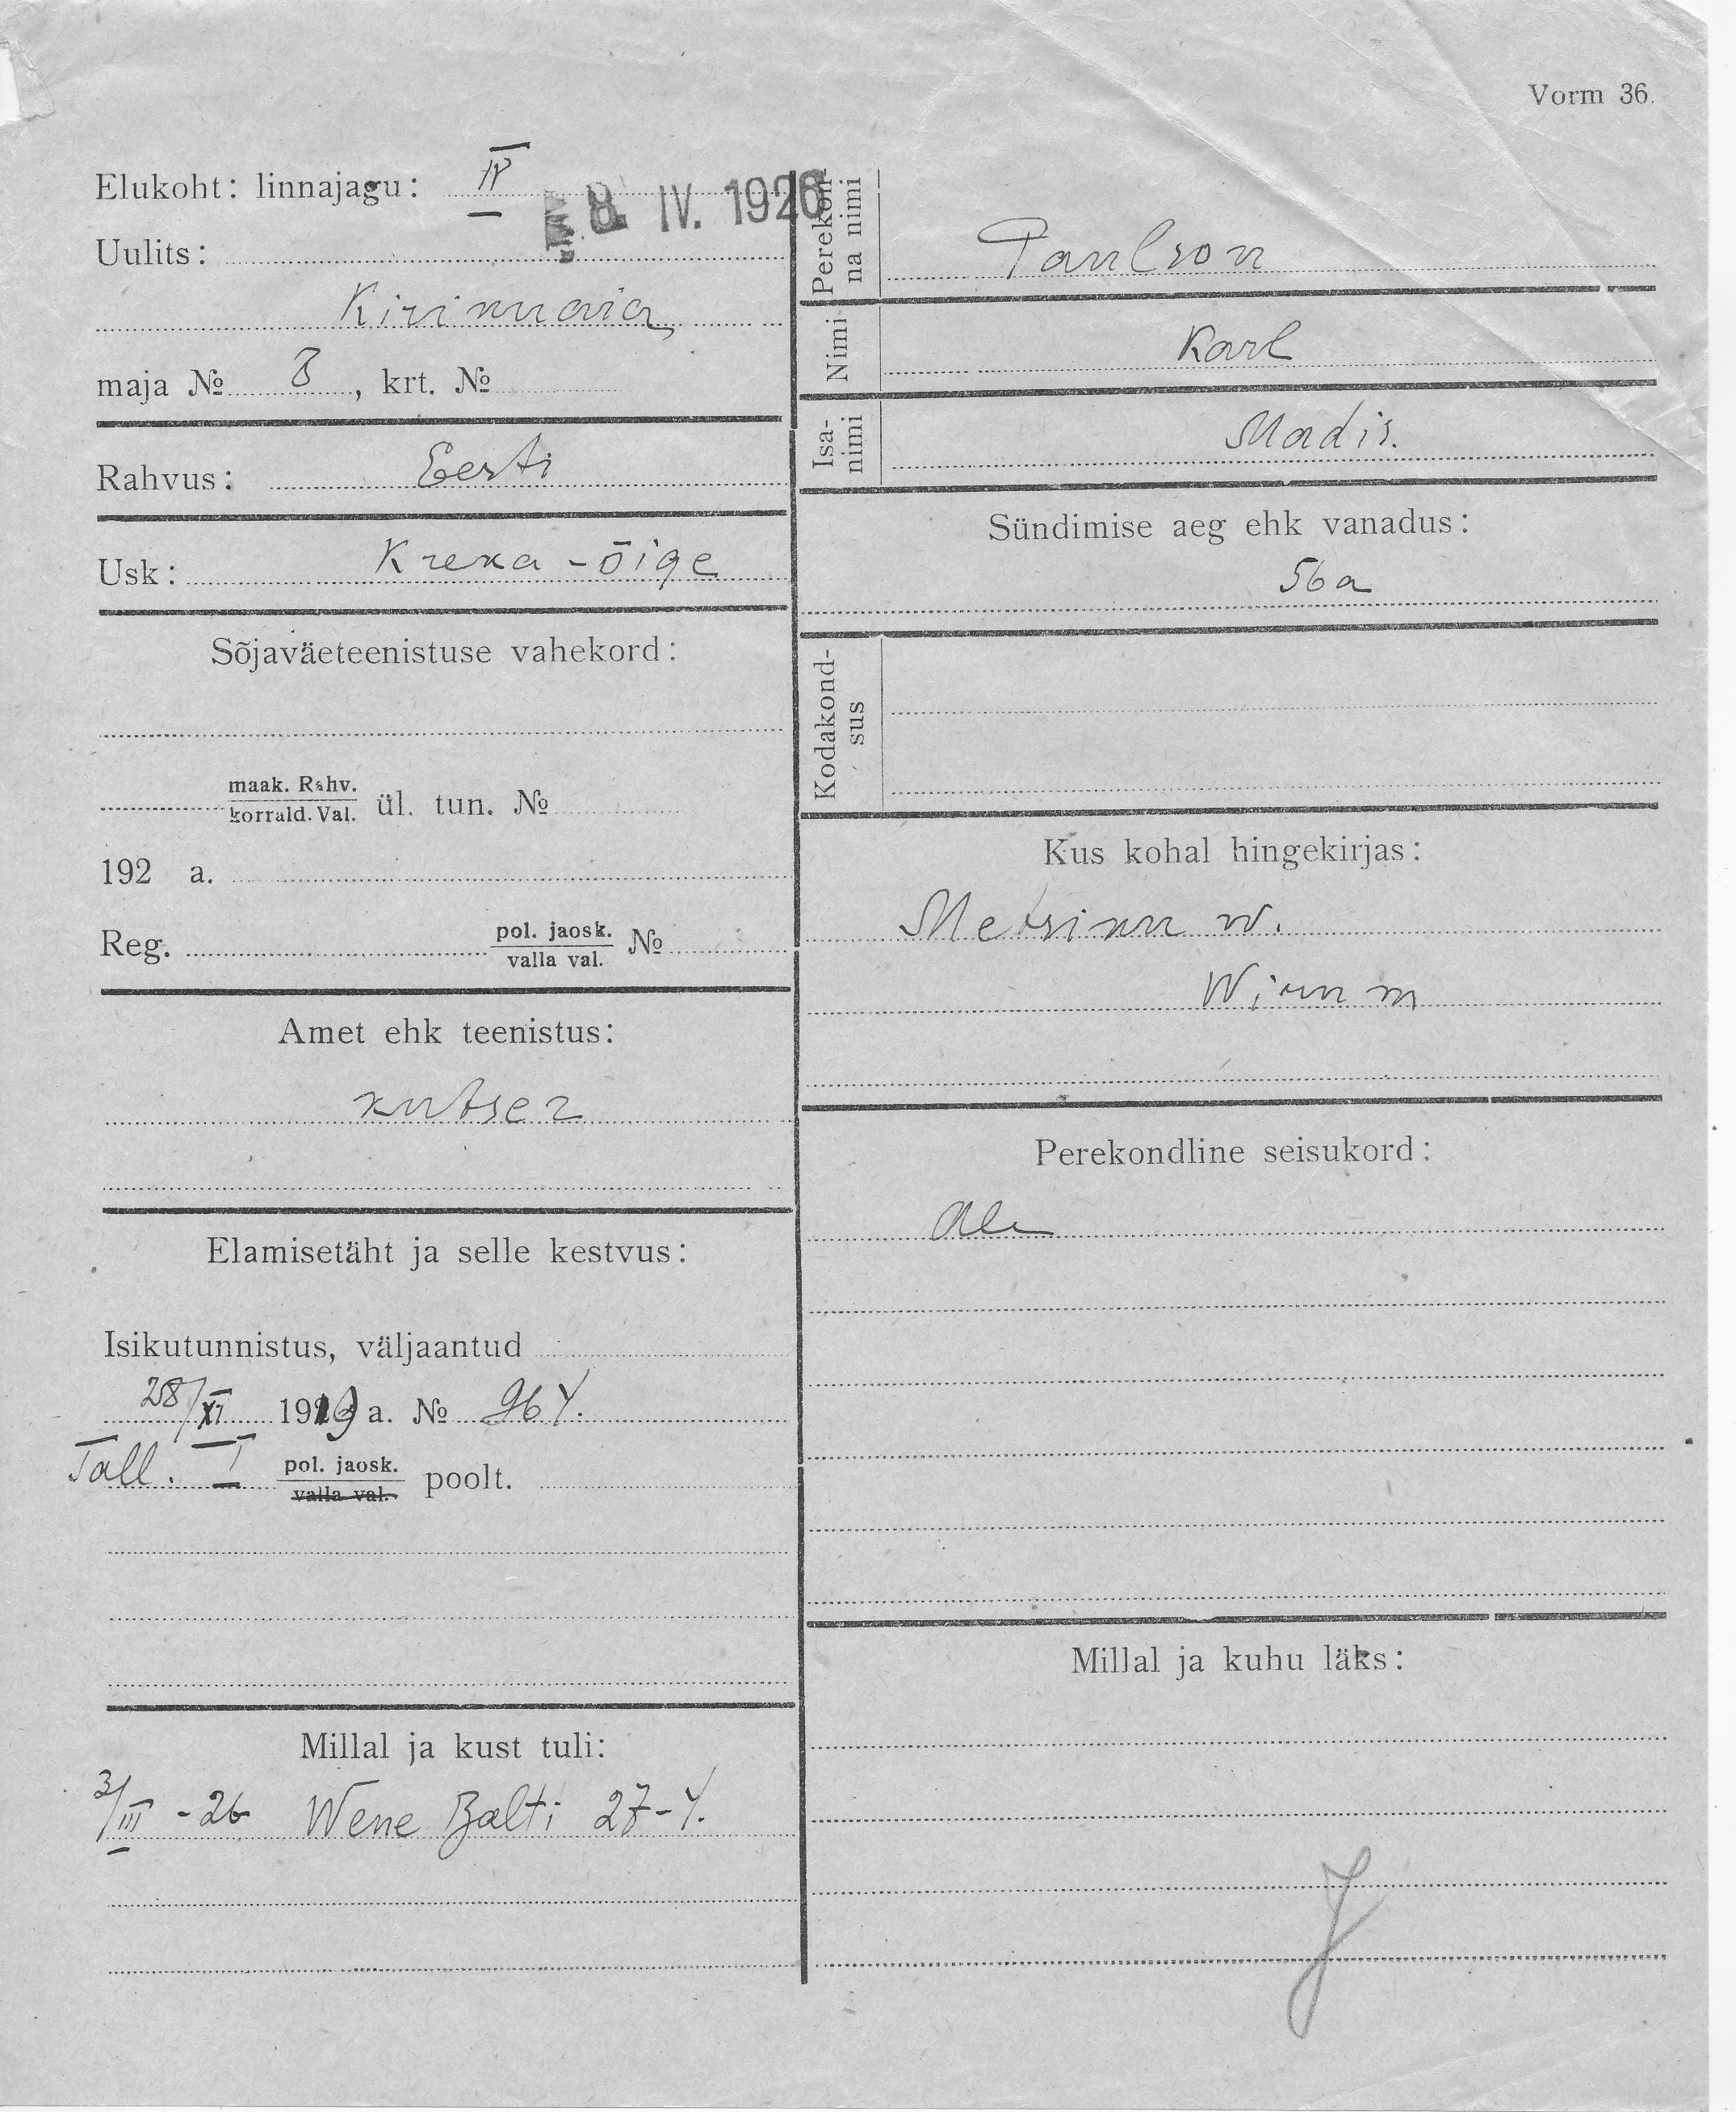 Vorm 36.
Elukoht: linnajagu: IV
8. IV. 1926
Uulits:
Kirimuaia
maja № 8, krt. №
Rahvus: Eesti
Usk: Kreka-õige
Sõjaväeteenistuse vahekord:
maak. Rahv.
korrald. Val. ül. tun. №
192 a.
Reg. pol. jaosk.
valla val. №
Amet ehk teenistus:
kutser
Elamisetäht ja selle kestvus:
Isikutunnistus, väljaantud
28/XI 1919 a. № 964.
Tall. I pol. jaosk.
valla val. poolt.
Millal ja kust tuli:
3/III -26 Wene Balti 27-4.
Perekon-
na nimi Paulson
Nimi Karl
Isa-
nimi Madis.
Sündimise aeg ehk vanadus:
56 a
Kodakond-
sus
Kus kohal hingekirjas:
Metsiku w.
Wiru m
Perekondline seisukord:
Millal ja kuhu läks: